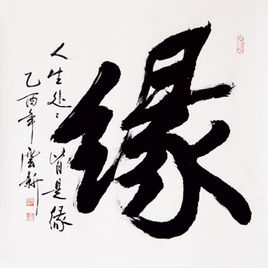 缘
人生处处皆是缘
乙酉年 云新